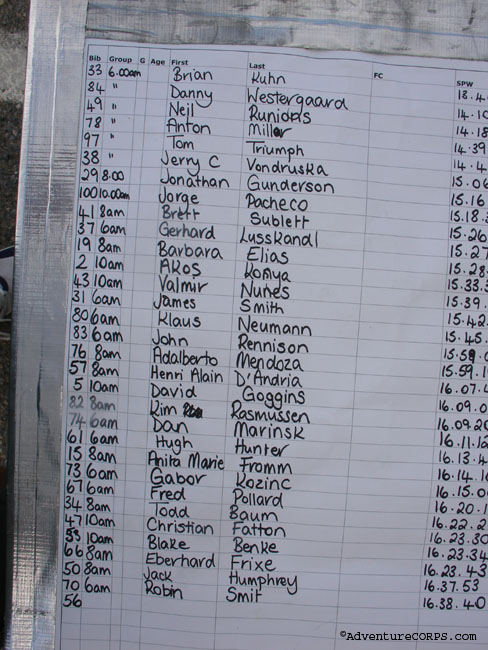 Bib Group G Age First Last FC SPW
33 6.00am Brian Kuhn 13.4
84 " Danny Westergaard 14.10
49 " Neil Runions 14.18
78 " Anton Miller 14.39
97 " Tom Triumph 14.4
38 " Jerry C Vondruska 15.06
29 8:00 Jonathan Gunderson 15.16
100 10.00am Jorge Pacheco 15.18.3
41 8am Brett Sublett 15.26
37 6am Gerhard Lusskandl 15.27
19 8am Barbara Elias 15.28
2 10am Akos Konya 15.33.3
43 10am Valmir Nunes 15.39.
31 6am James Smith 15.42.
80 6am Klaus Neumann 15.45.
83 6am John Rennison 15.59.0
76 8am Adalberto Mendoza 15.59.1
57 8am Henri Alain D'Andria 16.07.4
5 10am David Goggins 16.09.0
82 8am Kim Rasmussen 16.09.20
74 6am Dan Marinsk 16.11.12
61 6am Hugh Hunter 16.13.4
15 8am Anita Marie Fromm 16.14.1
73 6am Gabor Kozinc 16.15.0
67 6am Fred Pollard 16.20.1
34 8am Todd Baum 16.22.2
47 10am Christian Fatton 16.23.30
55 10am Blake Benke 16.23.34
66 8am Eberhard Frixe 16.23.43
50 8am Jack Humphrey 16.37.53
70 6am Robin Smit 16.38.40
56
©AdventureCORPS.com